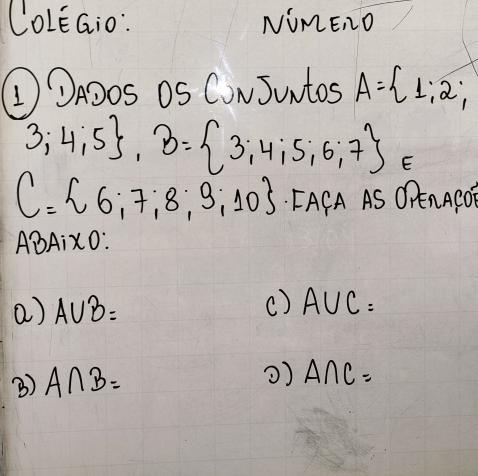 COLÉGIO: NÚMERO
① DADOS OS CONJUNTOS A={1;2;
3;4;5}, B={3;4;5;6;7} E
C={6;7;8;9;10}. FAÇA AS OPERAÇÕE
ABAIXO:
a) A∪B= c) A∪C=
B) A∩B= D) A∩C=